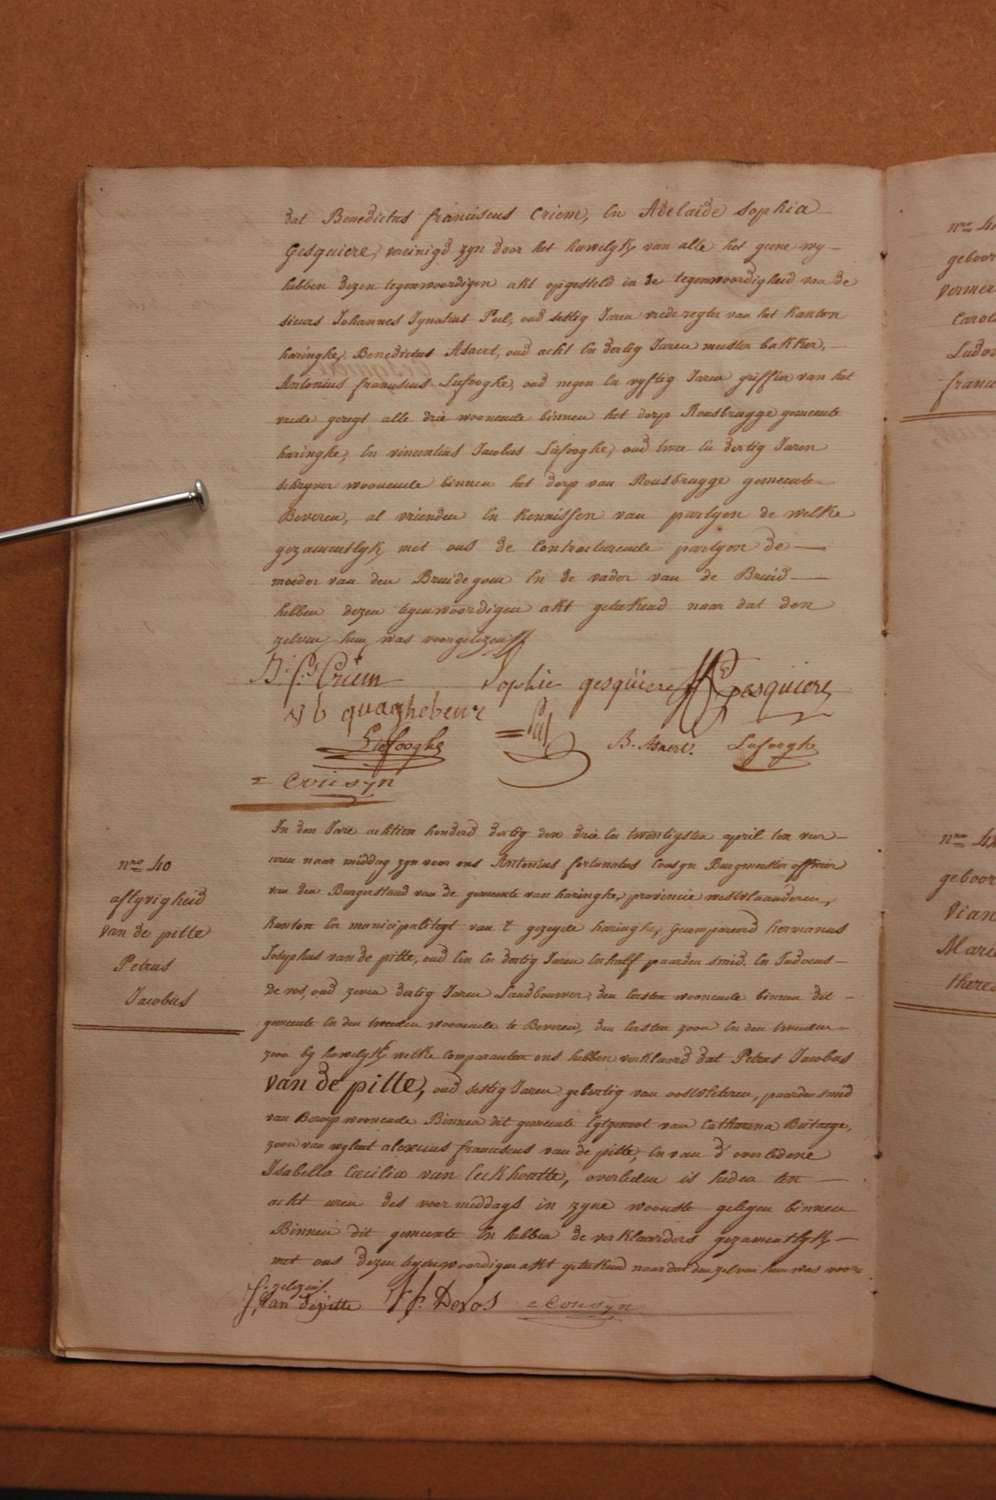 dat Benedictus franciscus Criem, En Adelaide Sophia
Gesquiere, vereinigd zyn door het huwelyk van alle het geene wy
hebben dezen tegenwoordigen akt opgesteld in de tegenwoordigheid van de
sieurs Johannes Ignatius Peel, oud sestig Jaren vrederegter van het kanton
haringhe, Benedictus Asaert, oud acht En dertig Jaren meester bakker,
Antonius franciscus Lefooghe, oud negen En vyftig Jaren griffier van het
vrede geregt alle drie woonende binnen het dorp Rousbrugge gemeente
haringhe, En vincentius Jacobus Lefooghe, oud twee En dertig Jaren
schryver woonende binnen het dorp van Rousbrugge gemeente
Beveren, al vrienden En kennissen van partyen de welke
gezamentlyk met ons de Contracteerende partyen de
moeder van den Bruidegom En de vader van de Bruid
hebben dezen tegenwoordigen akt geteekend naar dat den
zelven hun was voorgelezen
B. f. Criem Sophie gesquiere Gesquiere
quaghebeur
Lefooghe Peel B. Asaert. Lefooghe
Cousyn
In den Jare achtien honderd dertig den drie En twentigsten april ten vier
uren naar middag zyn voor ons Antonius fortunatus Cousyn Burgmeester officier
van den Burgerstand van de gemeente van haringhe, provincie westvlaanderen,
kanton En municipaliteyt van 't gezeyde haringhe, gecompareerd hermanus
Josephus van de pitte, oud Een En dertig Jaren En half paarden smid. En Judocus
De vos, oud zeven dertig Jaren Landbouwer, den eersten woonende binnen dit
gemeente En den tweeden woonende te Beveren, den eersten zoon En den tweeden
zoon by huwelyk welke comparanten ons hebben verklaard dat Petrus Jacobus
van de pitte, oud sestig Jaren geboortig van oostvleteren, paardesmid
van Beroep woonende Binnen dit gemeente Egtgenoot van Catharina
zoon van wylent alexius franciscus van de pitte, En van d' overledene
Isabella Cæcilia van Eeckhoutte, overleden is heden ten
acht uren des voormiddags in zyne woonste gelegen binnen
Binnen dit gemeente En hebben de verklaarders gezamentlyk
met ons dezen tegenwoordigen akt geteekend naar dat den zelven hun was voor
gelezen
van de pitte De Vos Cousyn
nro 40
aflyvigheid
van de pitte
Petrus
Jacobus
nro 41
geboor
vermer
Carol
Ludo
franc
nro 42
geboor
vian
Marie
theres